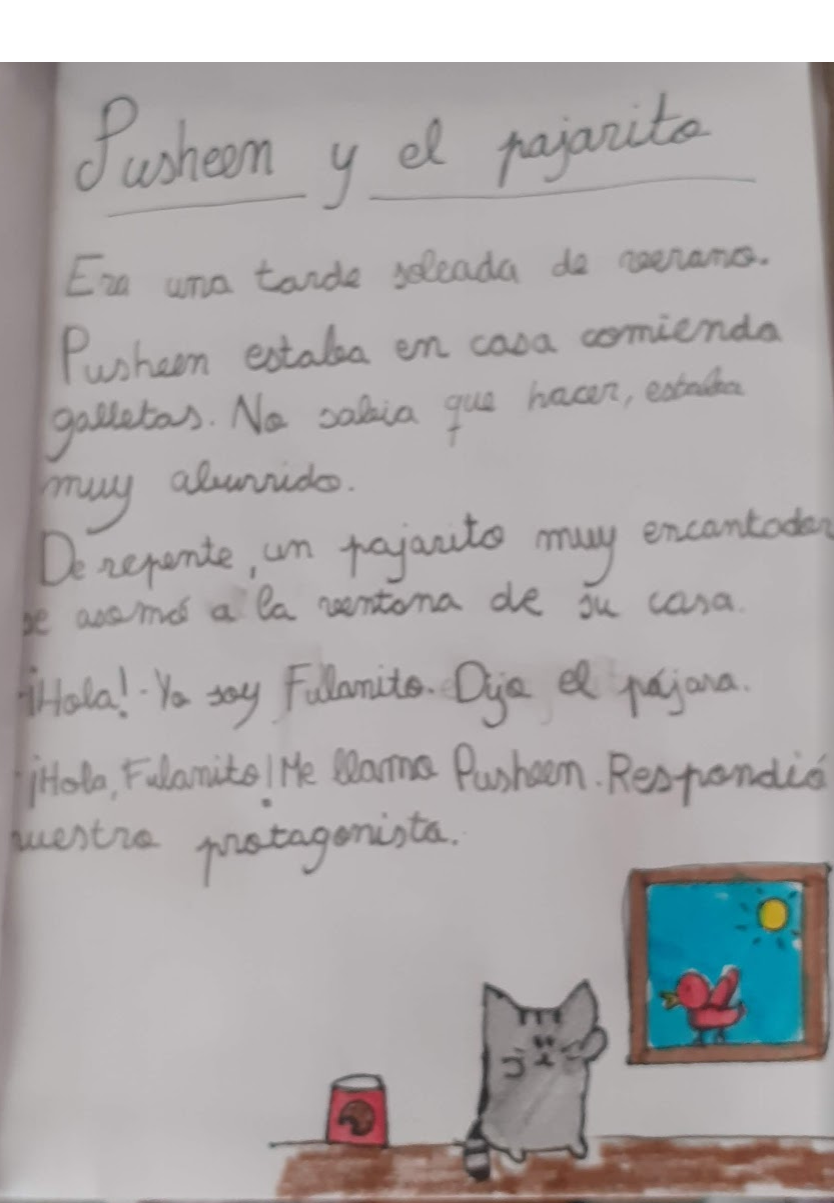 Pusheen y el pajarito
Era una tarde soleada de verano.
Pusheen estaba en casa comiendo
galletas. No sabia que hacer, estaba
muy aburrido.
De repente, un pajarito muy encantador
se asomó a la ventana de su casa.
-¡Hola! - Yo soy Fulanito. Dijo el pájaro.
-¡Hola, Fulanito! Me llamo Pusheen. Respondió
nuestro protagonista.